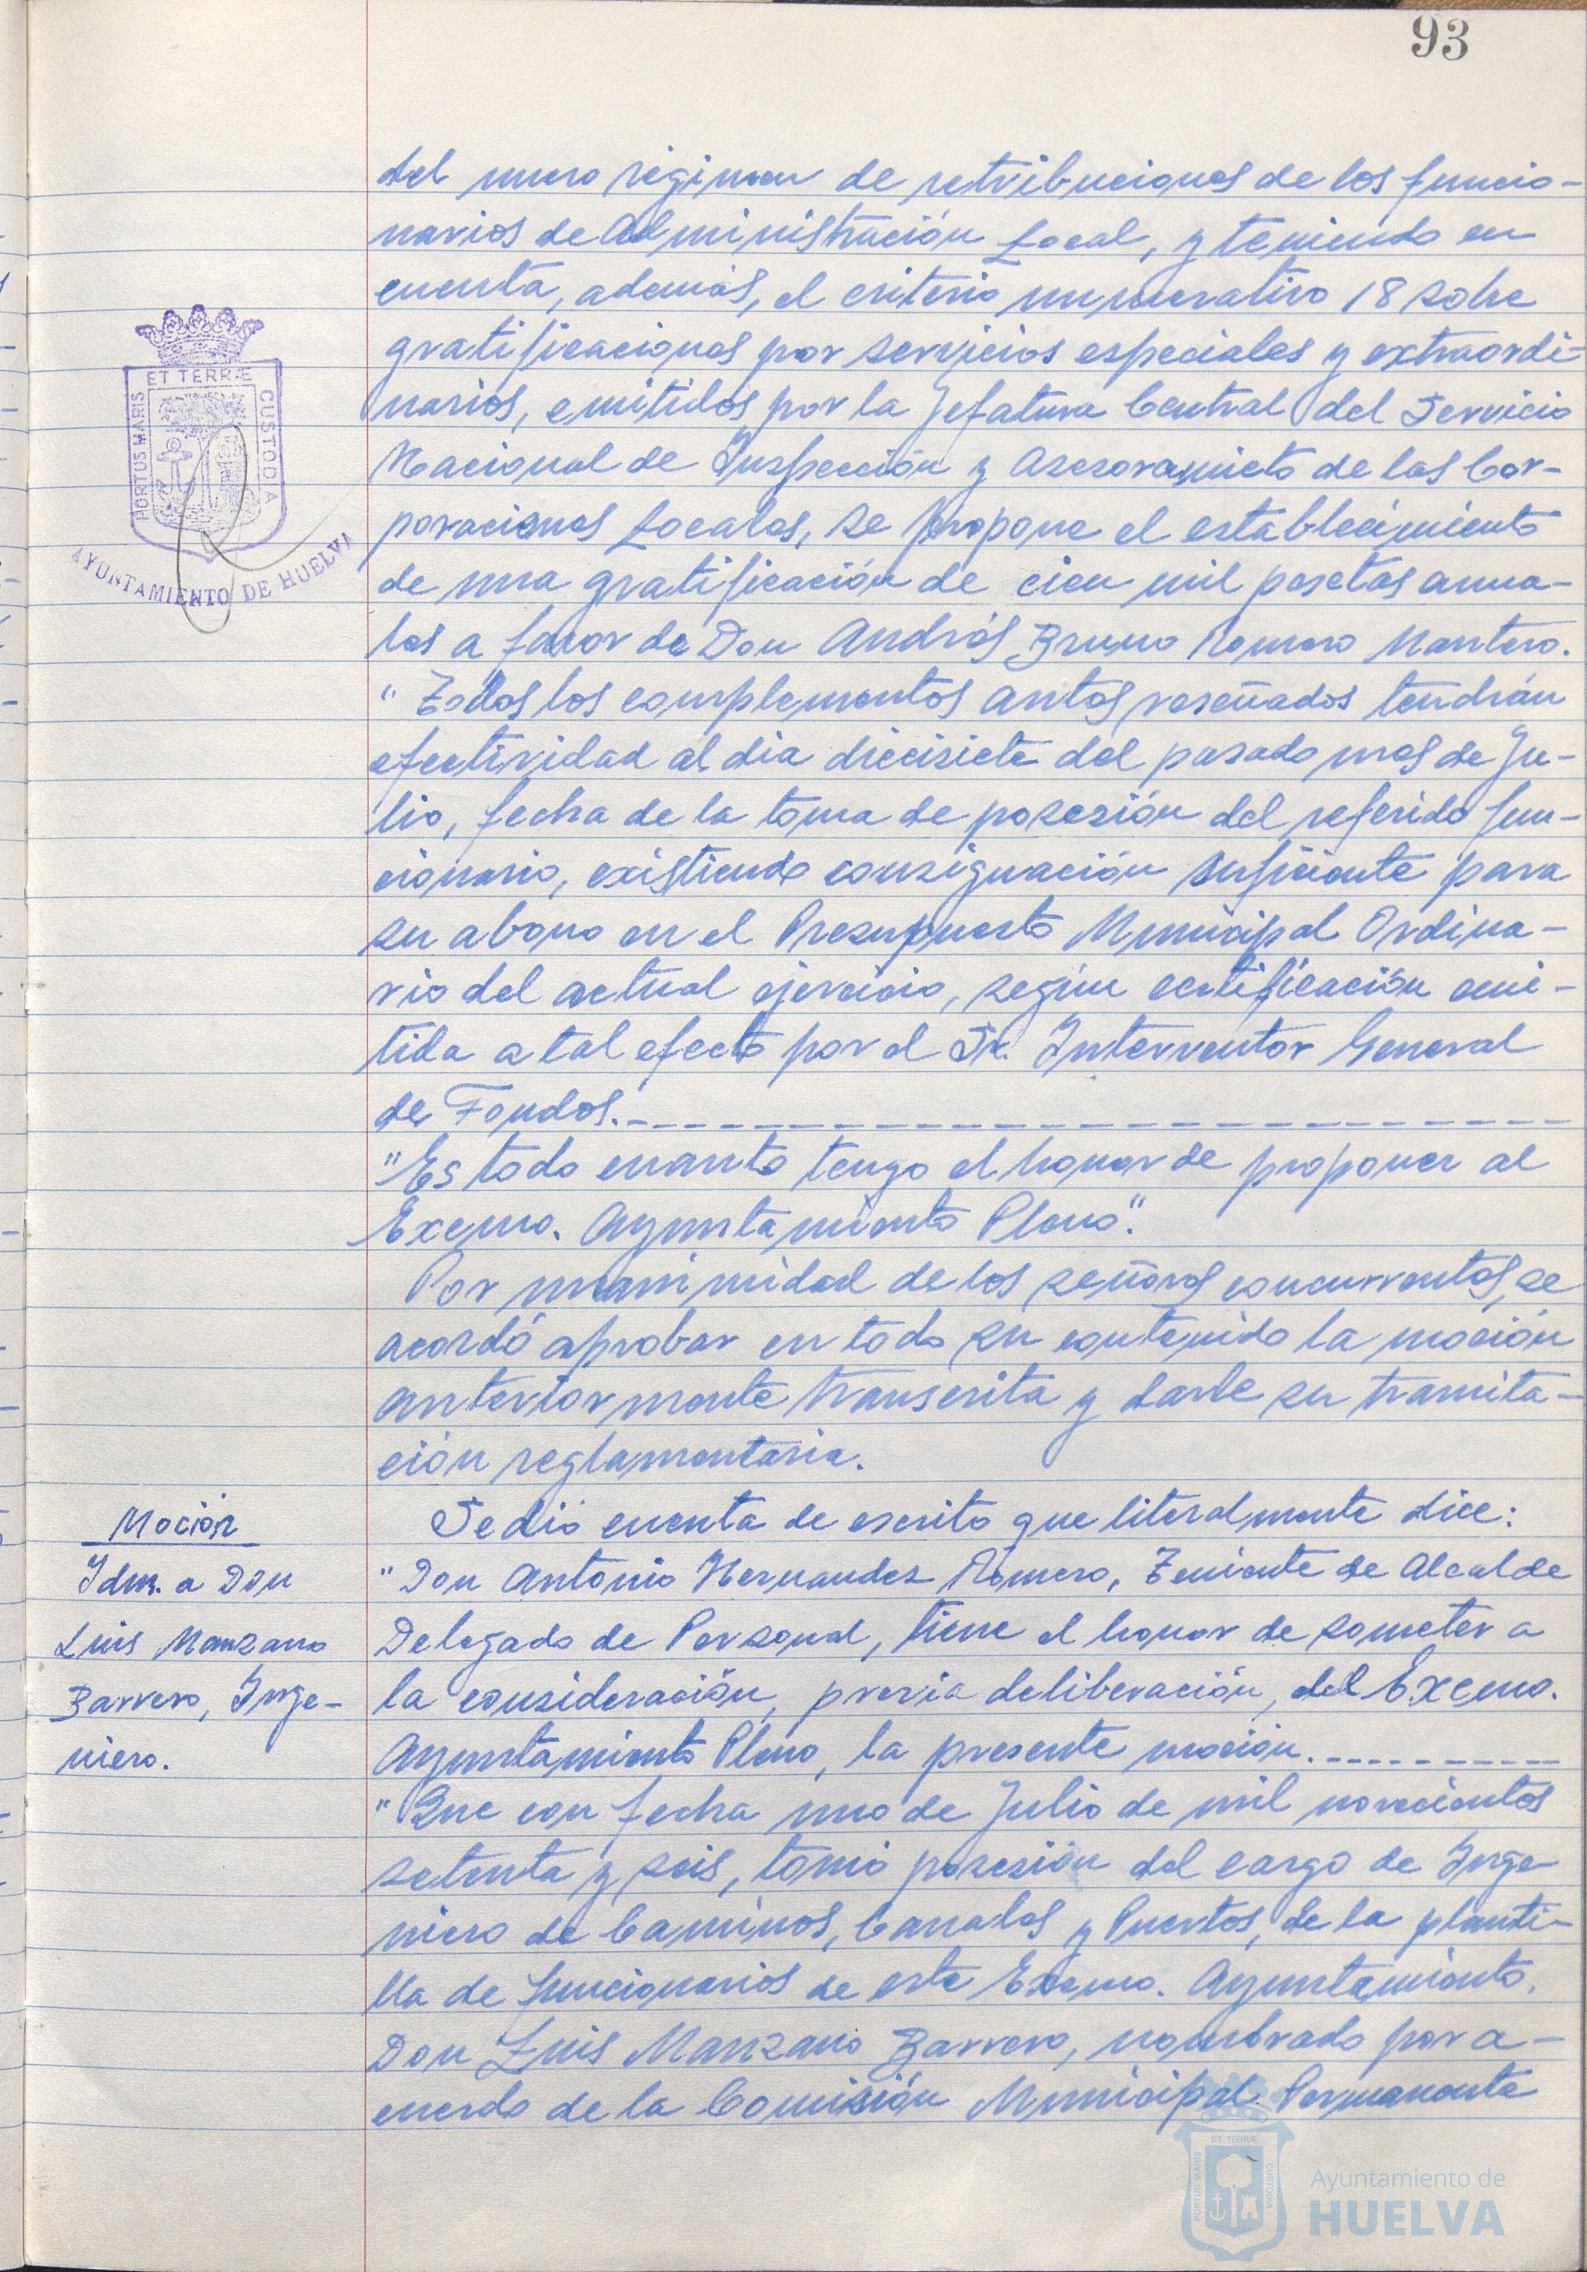 93
del nuevo régimen de retribuciones de los funcio-
narios de Administración Local, y teniendo en
cuenta, además, el criterio numerativo 18 sobre
gratificaciones por servicios especiales y extraordi-
narios, emitidos por la Jefatura Central del Servicio
Nacional de Inspección y Asesoramieto de las Cor-
poraciones Locales, se propone el establecimiento
de una gratificación de cien mil pesetas anua-
les a favor de Don Andrés Bruno Romero Mantero.
" Todos los complementos antes reseñados tendrán
efectividad al dia diecisiete del pasado mes de Ju-
lio, fecha de la toma de posesión del referido fun-
cionario, existiendo consignación suficiente para
su abono en el Presupuesto Municipal Ordina-
rio del actual ejercicio, según certificación emi-
tida a tal efecto por el Sr. Interventor General
de Fondos.
"Es todo cuanto tengo el honor de proponer al
Excmo. Ayuntamiento Pleno".
Por unanimidad de los señores concurrentes, se
acordó aprobar en todo su contenido la moción
anteriormente transcrita y darle su tramita-
ción reglamentaria.
Moción
Idm. a Don
Luis Manzano
Barrero, Inge-
niero.
Se dió cuenta de escrito que literalmente dice:
"Don Antonio Hernandez Romero, Teniente de Alcalde
Delegado de Personal, tiene el honor de someter a
la consideración, previa deliberación, del Excmo.
Ayuntamiento Pleno, la presente moción.
"Que con fecha uno de Julio de mil novecientos
setenta y seis, tomó posesión del cargo de Inge-
niero de Caminos, Canales y Puertos, de la planti-
lla de funcionarios de este Excmo. Ayuntamiento,
Don Luis Manzano Barrero, nombrado por a-
cuerdo de la Comisión Municipal Permanente
PORTUS MARIS ET TERRÆ CUSTODIA
AYUNTAMIENTO DE HUELVA
PORTUS MARIS ET TERRÆ CUSTODIA
Ayuntamiento de
HUELVA